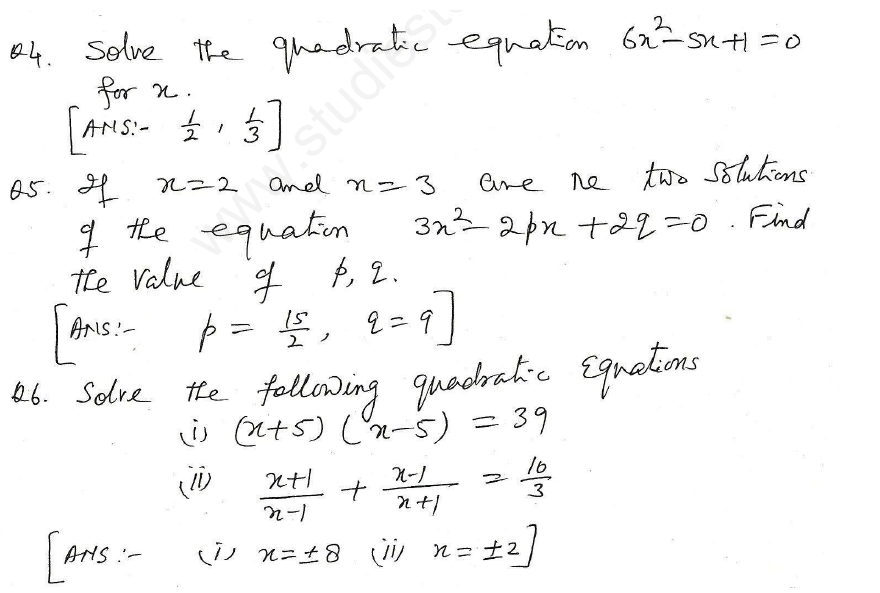 Q4. Solve the quadratic equation 6x²-5x+1=0
for x.
[ANS:- 1/2, 1/3]
Q5. If x=2 and x=3 are the two solutions
of the equation 3x²-2px+2q=0. Find
the value of p, q.
[ANS:- p = 15/2, q=9]
Q6. Solve the following quadratic Equations
(i) (x+5) (x-5) = 39
(ii) x+1/x-1 + x-1/x+1 = 10/3
[ANS:- (i) x=±8 (ii) x=±2]